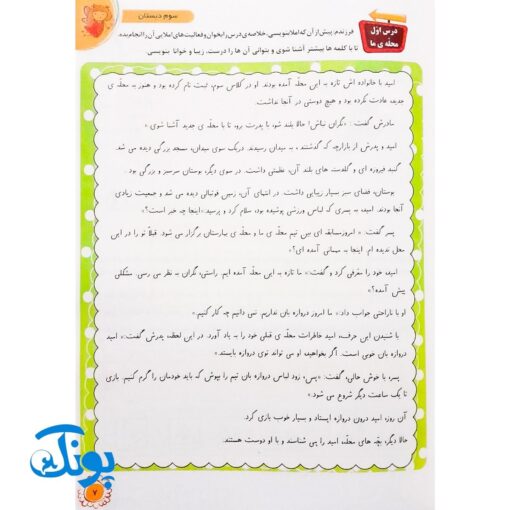 سوم دبستان
درس اوّل
محلّه ی ما
فرزندم: پیش از آن که املا بنویسی، خلاصه ی درس را بخوان و فعالیت های املایی آن را انجام بده،
تا با کلمه ها بیشتر آشنا شوی و بتوانی آن ها را درست، زیبا و خوانا بنویسی.
امید با خانواده اش تازه به این محلّه آمده بودند. او در کلاس سوم، ثبت نام کرده بود و هنوز به محلّه ی
جدید، عادت نکرده بود و هیچ دوستی در آنجا نداشت.
مادرش گفت: «نگران نباش! حالا بلند شو، با پدرت برو، تا با محلّه ی جدید آشنا شوی.»
امید و پدرش از بازارچه که گذشتند، به میدان رسیدند. دریک سوی میدان، مسجد بزرگی دیده می شد.
گنبد فیروزه ای و گلدسته های بلند آن، عظمتی داشت. در سوی دیگر، بوستان سرسبز و بزرگی بود.
بوستان، فضای سبز بسیار زیبایی داشت. در انتهای آن، زمین فوتبالی دیده می شد و جمعیت زیادی
آنجا بودند. امید، به پسری که لباس ورزشی پوشیده بود، سلام کرد و پرسید: «اینجا چه خبر است؟»
پسر گفت: « امروزمسابقه ای بین تیم محلّه ی ما و محلّه ی بیمارستان برگزار می شود. قبلاً تو را در این
محل ندیده ام. اینجا به میمانی آمده ای؟»
امید، خود را معرّفی کرد و گفت:« ما تازه به این محلّه آمده ایم. راستی، نگران به نظر می رسی. مشکلی
پیش آمده؟»
او با ناراحتی جواب داد:« ما امروز دروازه بان نداریم. نمی دانیم چه کار کنیم.»
با شنیدن این حرف، امید خاطرات محلّه ی قبلی خود را به یاد آورد. در این لحظه، پدرش گفت:« امید
دروازه بان خوبی است. اگر بخواهید، او می تواند توی دروازه بایستد.»
پسر، با خوش حالی، گفت: «پس، زود لباس دروازه بان تیم را بپوش که باید خودمان را گرم کنیم. بازی
تا یک ساعت، دیگر شروع می شود.»
آن روز، امید درون دروازه ایستاد و بسیار خوب بازی کرد.
حالا دیگر، بچّه های محلّه، امید را می شناسند و با او دوست هستند.
پونک
۷